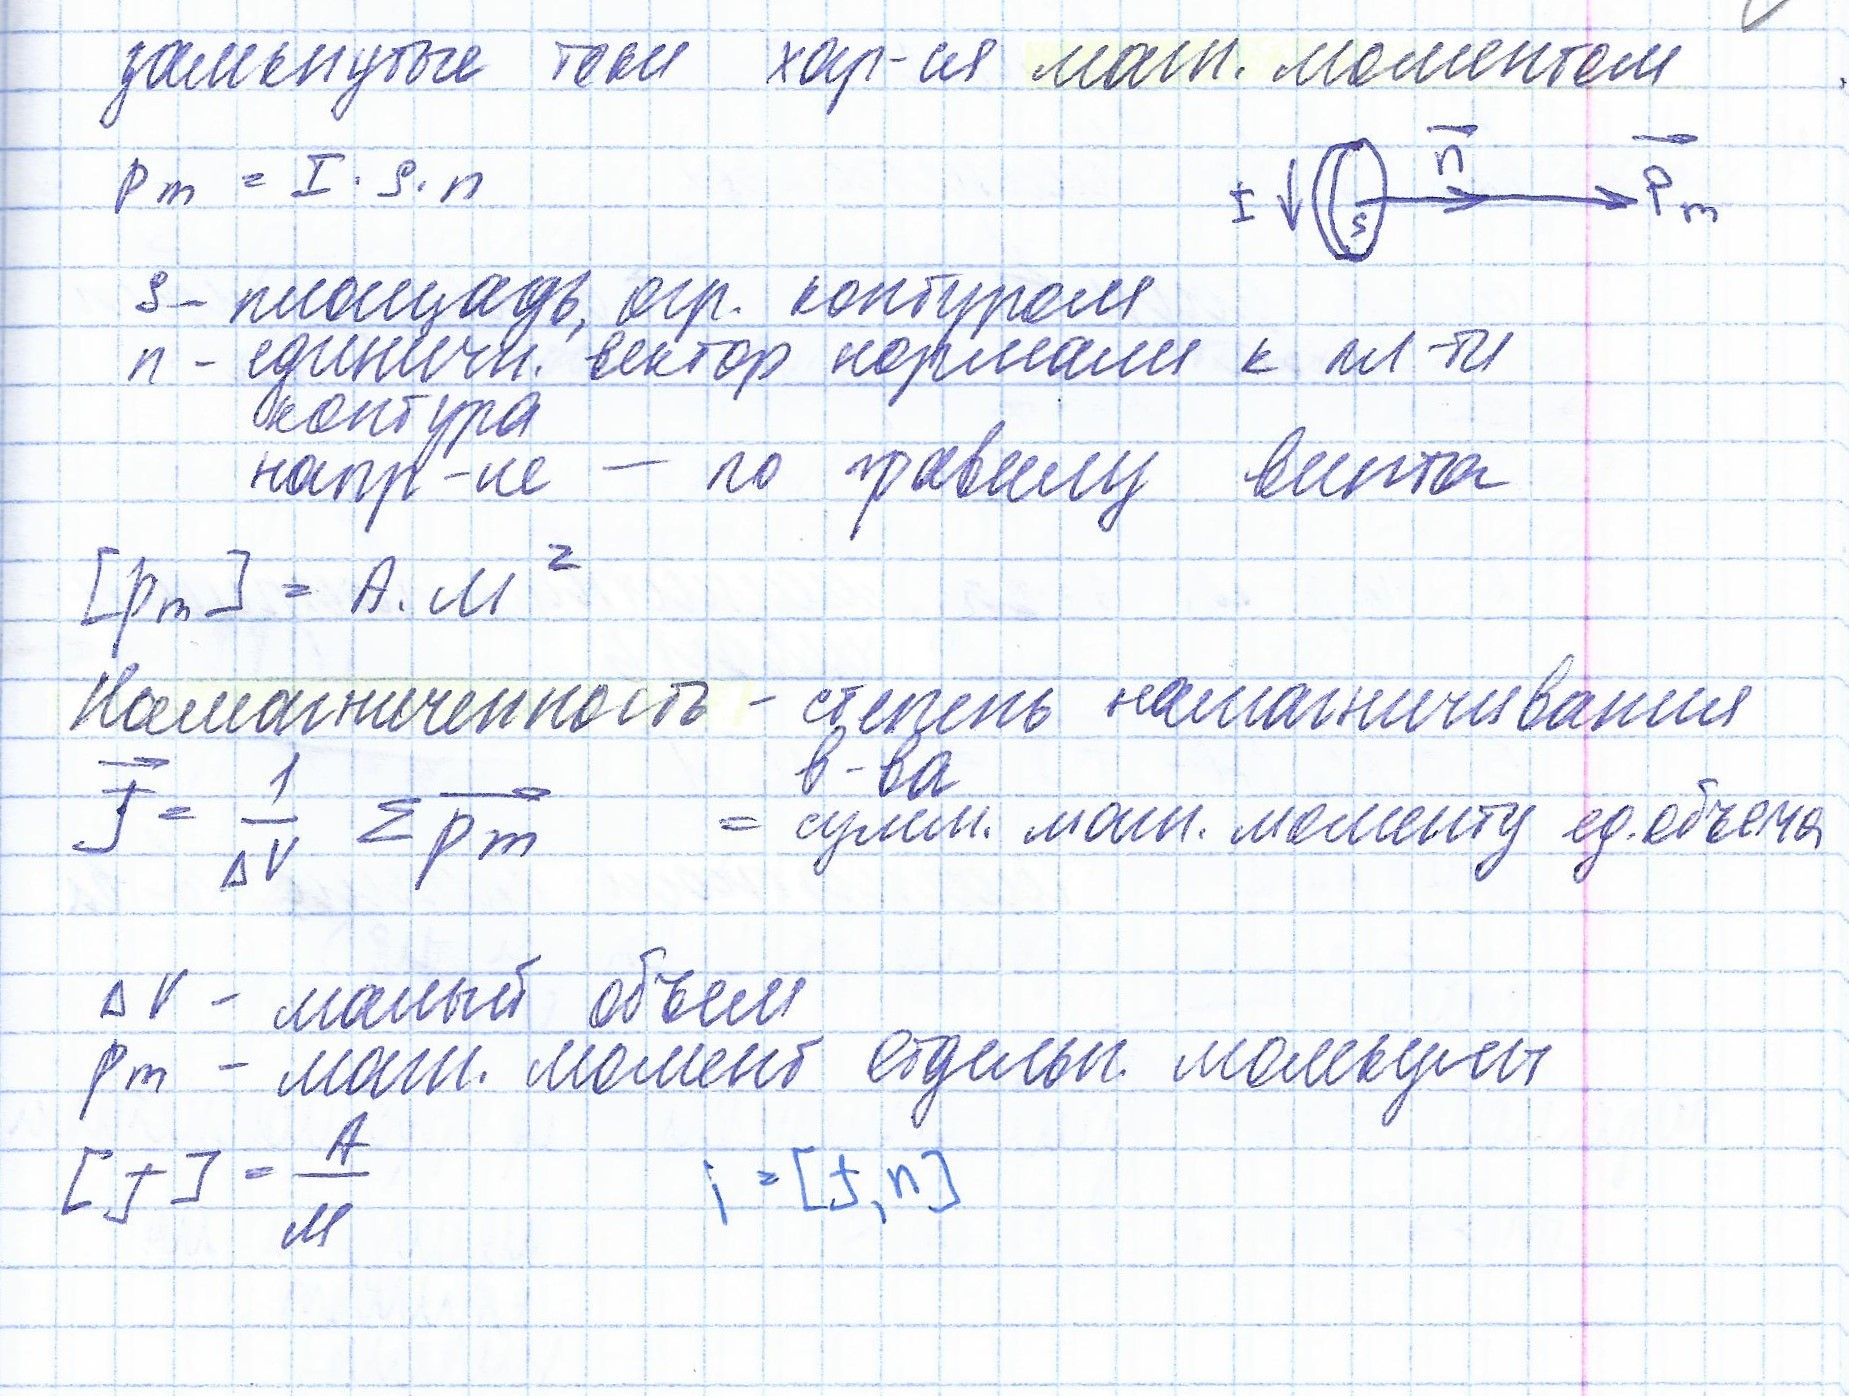 замкнутые токи хар-ся магн. моментом
pm = I · S · n
I S n Pm
S – площадь, огр. контуром
n – единичн. вектор нормали к пл-ти
контура
напр-ие – по правилу винта
[pm] = А · м²
Намагниченность – степень намагничивания
в-ва
J = 1/ΔV Σ pm = сумм. магн. моменту ед. объема
ΔV – малый объем
pm – магн. момент отдельн. молекулы
[J] = А/м i = [J, n]